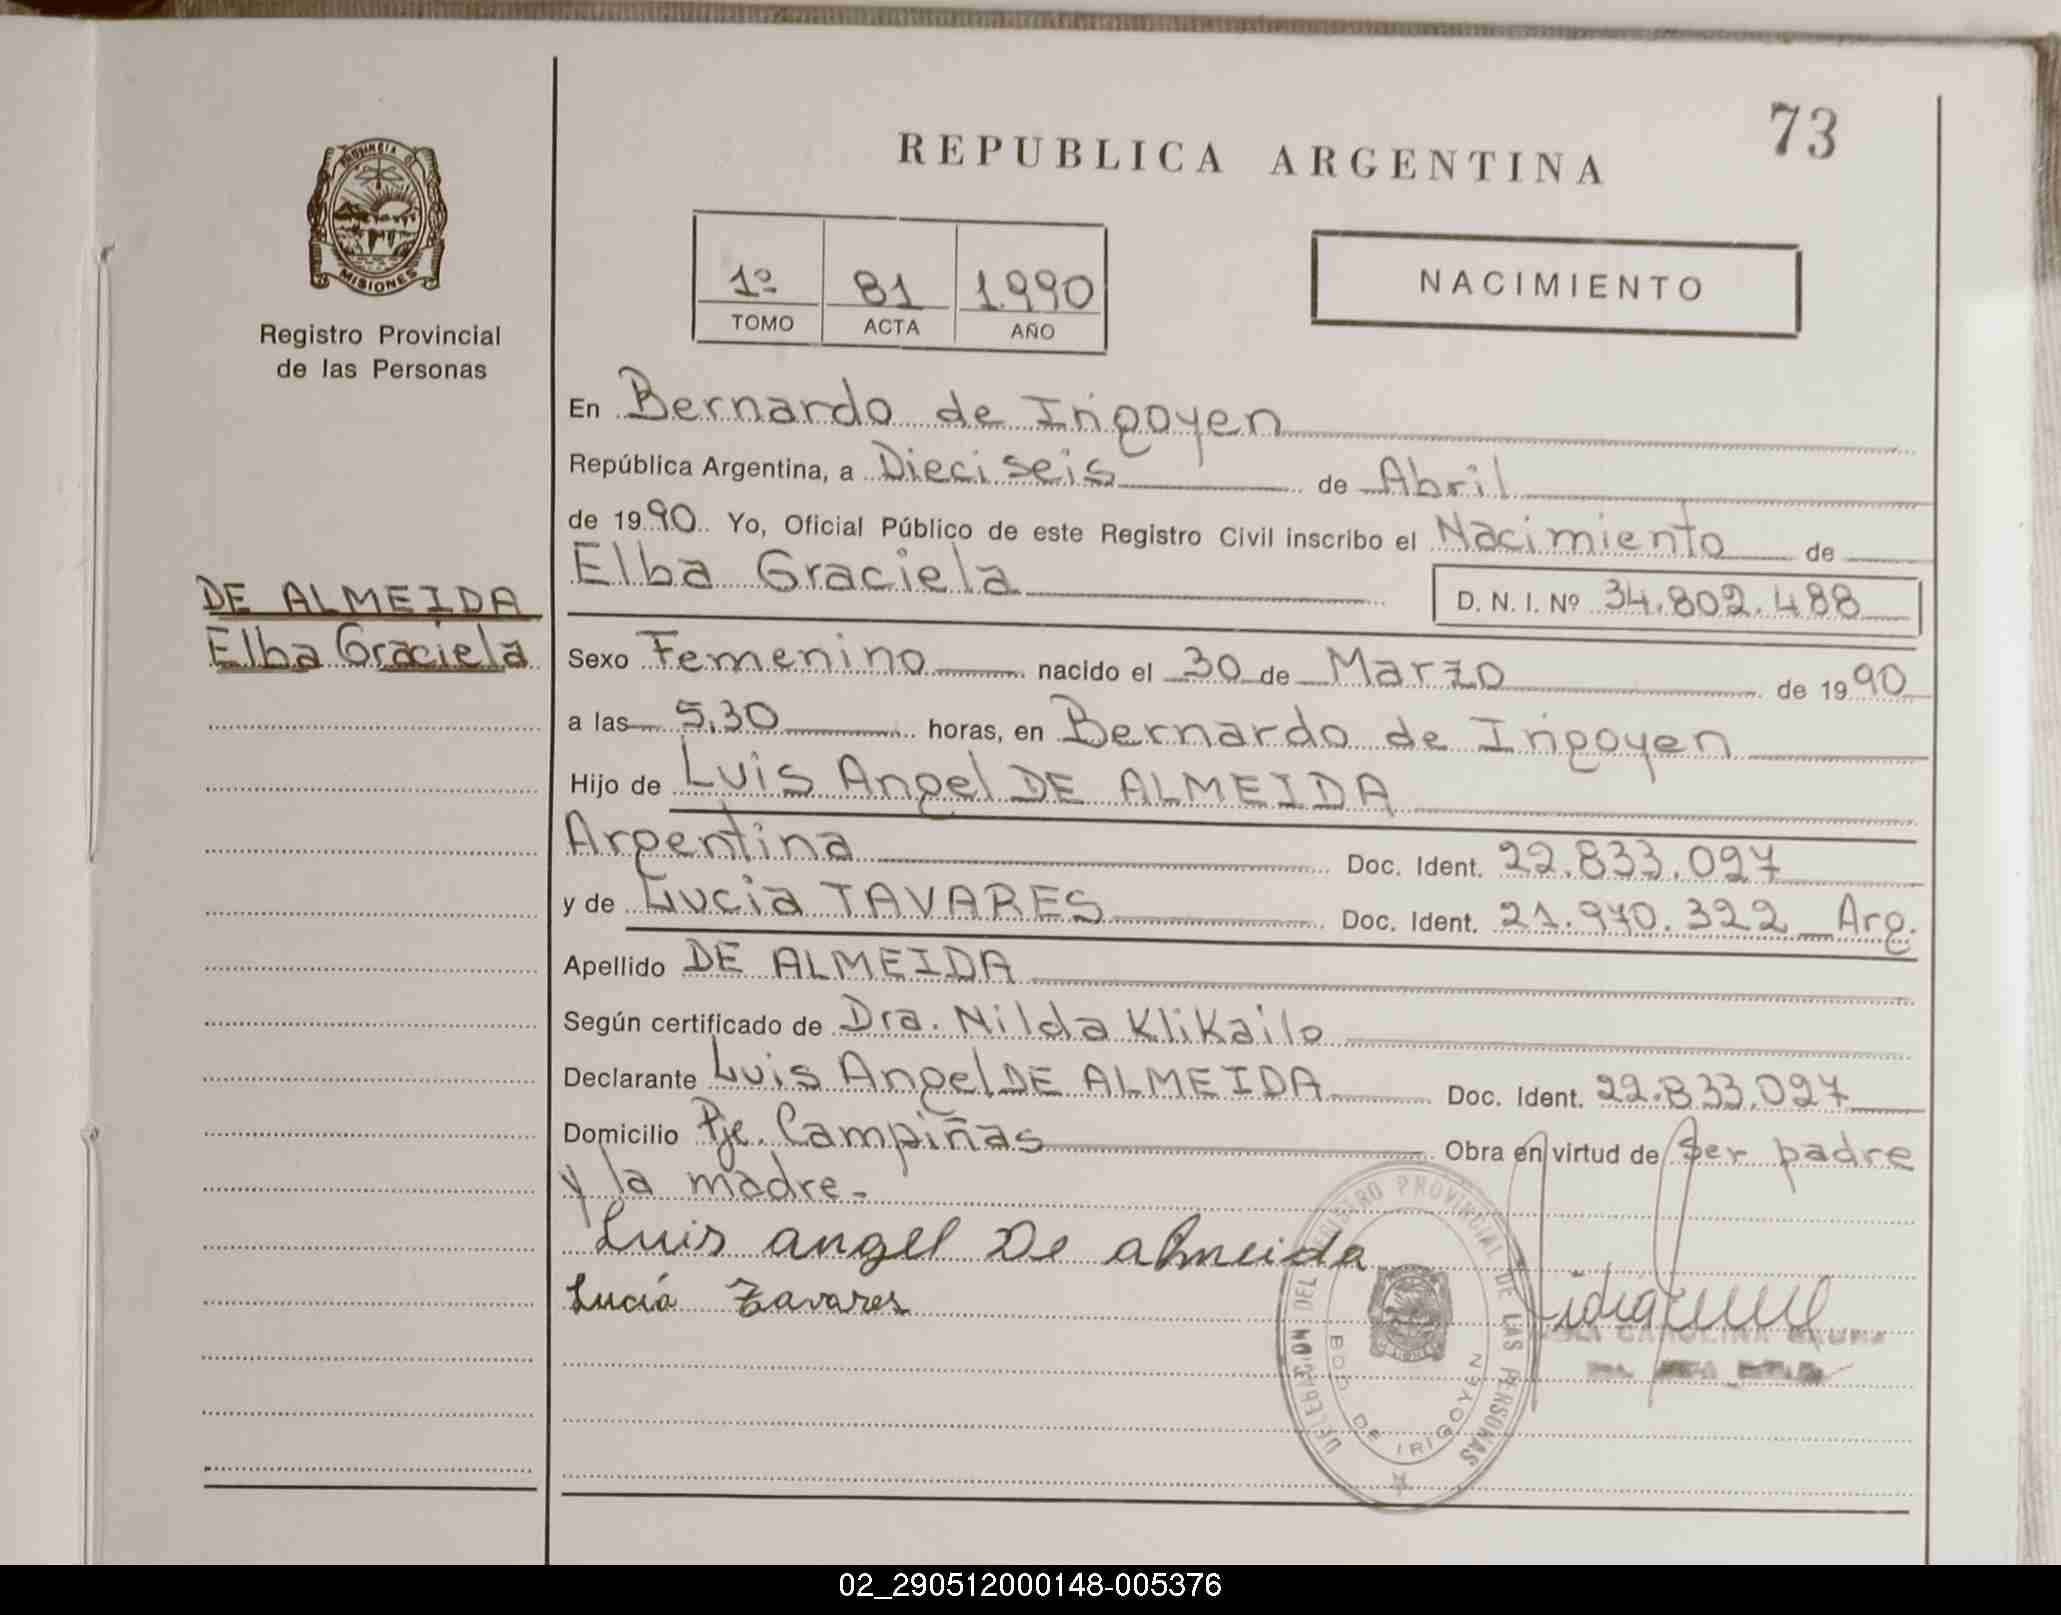 73
REPUBLICA ARGENTINA
PROVINCIA DE
MISIONES
Registro Provincial
de las Personas
1º 81 1.990
TOMO ACTA AÑO
NACIMIENTO
En Bernardo de Irigoyen
República Argentina, a Dieciseis de Abril
de 1990 Yo, Oficial Público de este Registro Civil inscribo el Nacimiento de
Elba Graciela D. N. I. Nº 34.802.488
DE ALMEIDA
Elba Graciela
Sexo Femenino nacido el 30 de Marzo de 1990
a las 5,30 horas, en Bernardo de Irigoyen
Hijo de Luis Angel DE ALMEIDA
Argentina Doc. Ident. 22.833.027
y de Lucia TAVARES Doc. Ident. 21.970.322 Arg.
Apellido DE ALMEIDA
Según certificado de Dra. Nilda Klikailo
Declarante Luis Angel DE ALMEIDA Doc. Ident. 22.833.027
Domicilio Pje. Campiñas Obra en virtud de ser padre
y la madre.-
Luis angel De almeida
Lucía Tavares
DELEGACION DEL REGISTRO PROVINCIAL DE LAS PERSONAS
BDO. DE IRIGOYEN
CAROLINA
02_290512000148-005376